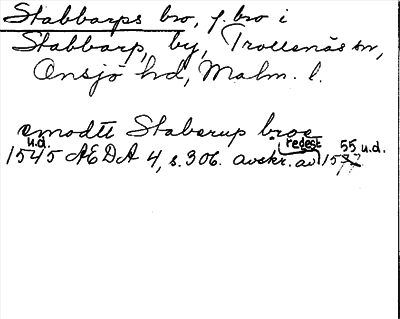 Stabbarps bro, f. bro i
Stabbarp, by, Trollenäs sn,
Onsjö hd, Malm. l.
emodtt Staberup broe
u.d. redest 55 u.d.
1545 AEDA 4, s. 306. avskr. av 15